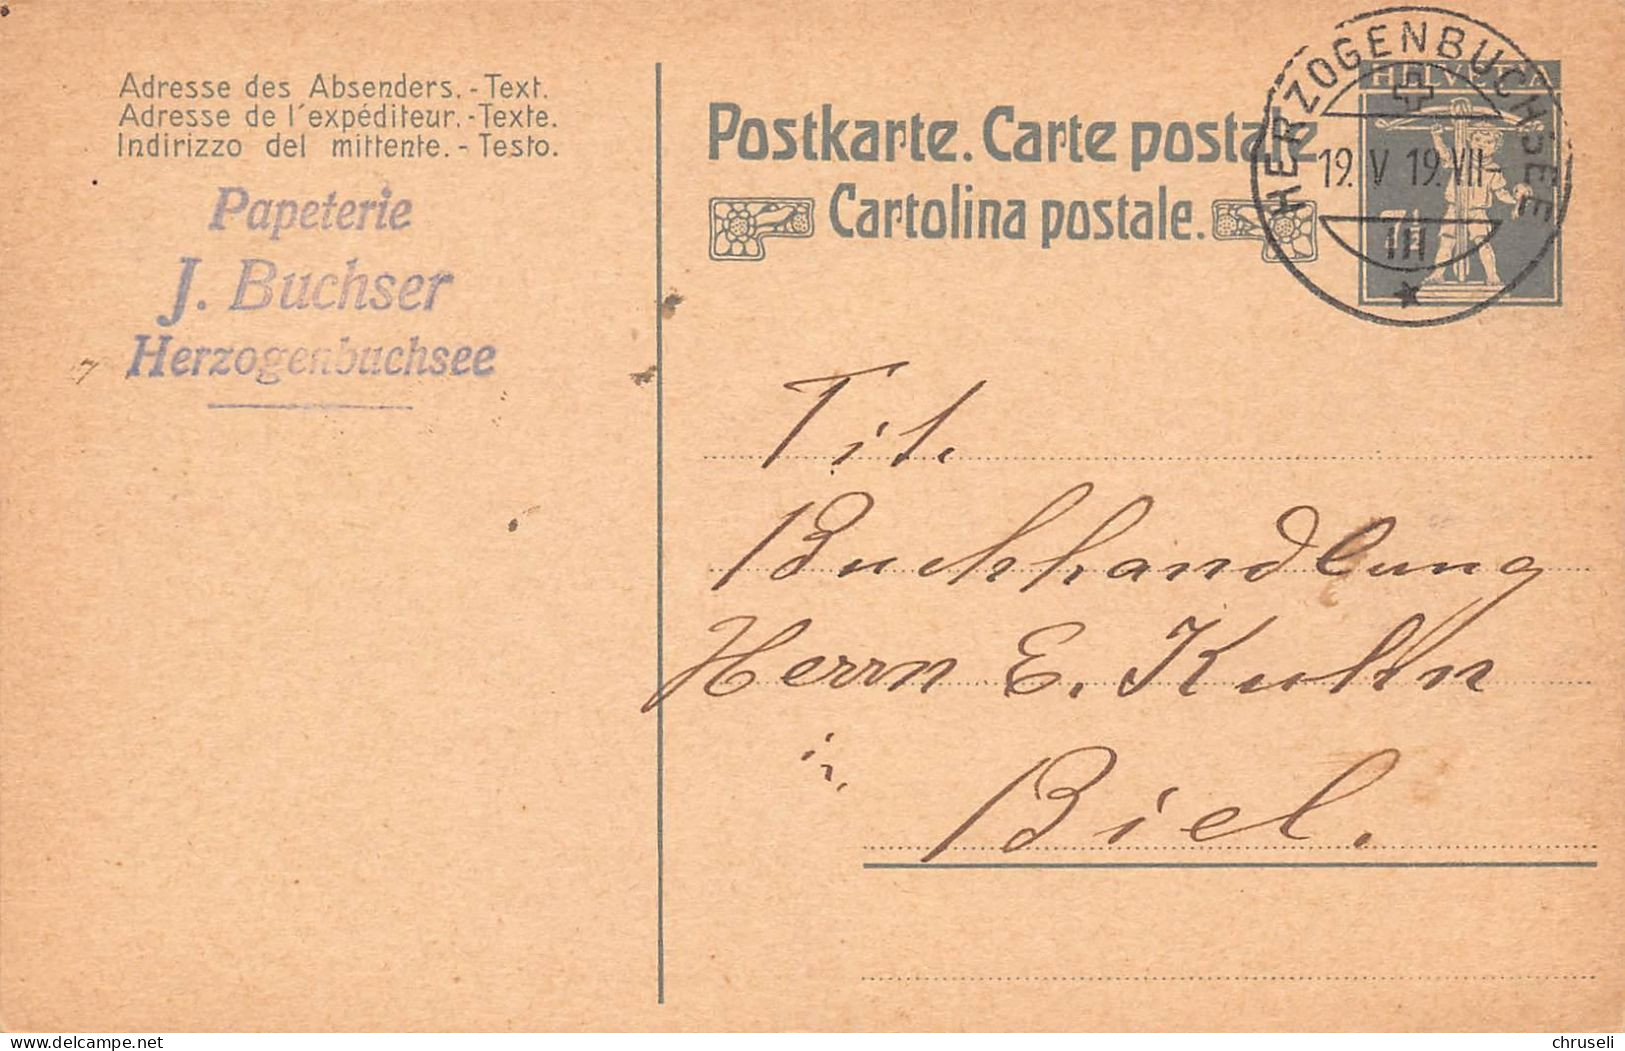 Adresse des Absenders. - Text.
Adresse de l'expéditeur. - Texte.
Indirizzo del mittente. - Testo.
Papeterie
J. Buchser
Herzogenbuchsee
Postkarte. Carte postale
Cartolina postale.
HERZOGENBUCHSEE
19. V. 19. VII-
III
HELVETIA
7½
Tit.
Buchhandlung
Herrn E. Kuhn
in
Biel.
delcampe.net
chruseli